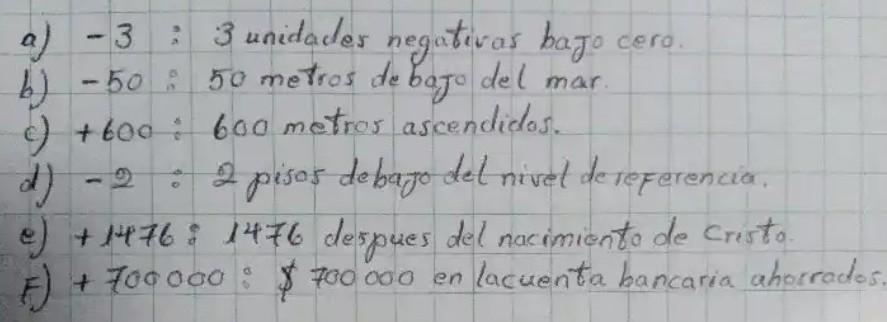 a) -3 : 3 unidades negativas bajo cero.
b) -50 : 50 metros debajo del mar.
c) +600 : 600 metros ascendidos.
d) -2 : 2 pisos debajo del nivel de referencia.
e) +1476 : 1476 despues del nacimiento de Cristo.
F) +700000 : $ 700000 en lacuenta bancaria ahorrados.